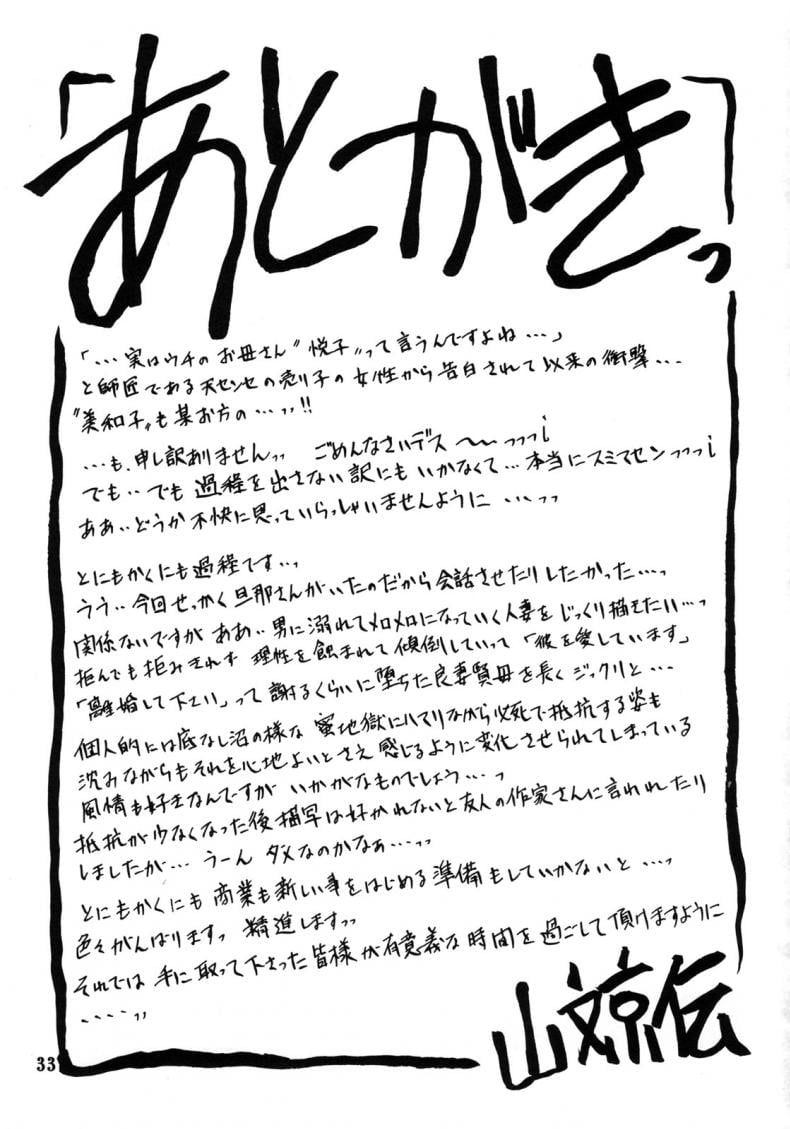 「あとがきっ」
「…実はウチのお母さん〝悦子〟って言うんですよね…」
と師匠である天センセの売り子の女性から告白されて以来の衝撃…
〝美和子〟も某お方の…ッッ!!
…も、申し訳ありませんッッ ごめんなさいデス〜〜っっっ¡
でも‥でも過程を出さない訳にもいかなくて…本当にスミマセンっっっ¡
ああ‥どうか不快に思っていらっしゃいませんように…ッッ
とにもかくにも過程です…っ
うう‥今回せっかく旦那さんがいたのだから会話させたりしたかった…っ
関係ないですが ああ‥男に溺れてメロメロになっていく人妻をじっくり描きたい…っ
拒んでも拒みきれず 理性を蝕まれて傾倒していって「彼を愛しています」
「離婚して下さい」って謝るくらいに堕ちた良妻賢母を長くジックリと…
個人的には底なし沼の様な 蜜地獄にハマリながら必死で抵抗する姿も
沈みながらもそれを心地よいとさえ感じるように変化させられてしまっている
風情も好きなんですが いかがなものでしょう…っ
抵抗が少なくなった後描写は好かれないと友人の作家さんに言われたり
しましたが… うーん ダメなのかなぁ…ッッ
とにもかくにも 商業も新しい事をはじめる準備もしていかないと…っ
色々がんばりますっ 精進しますッッ
それでは 手に取って下さった皆様が有意義な時間を過ごして頂けますように
‥‥ッッ
山文京伝
33